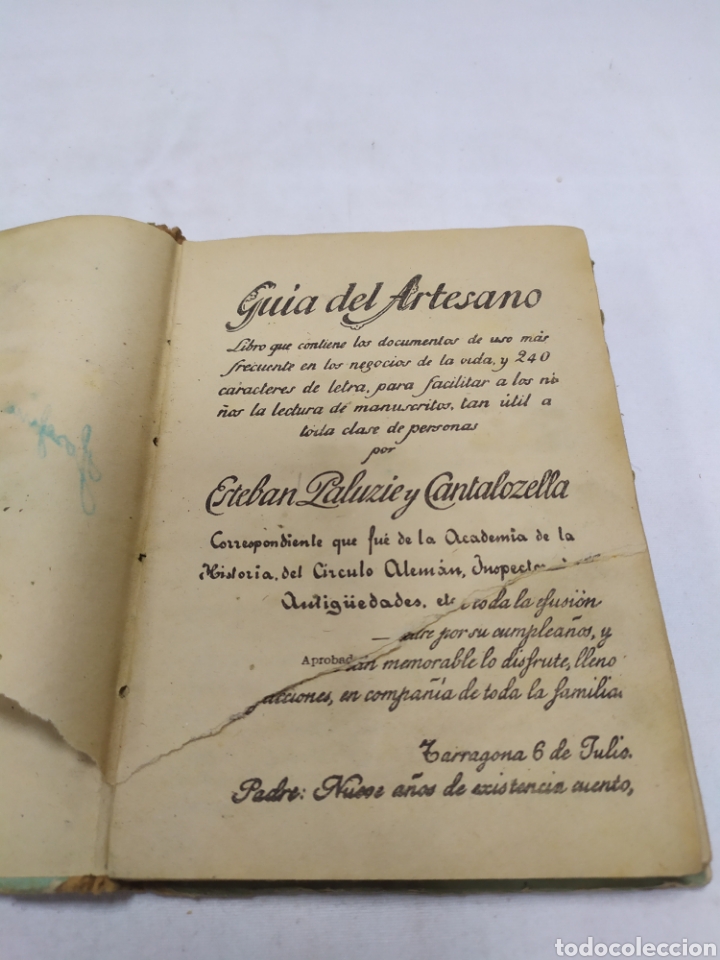 Guia del Artesano
Libro que contiene los documentos de uso más
frecuente en los negocios de la vida, y 240
caracteres de letra, para facilitar a los ni-
ños la lectura de manuscritos, tan útil a
toda clase de personas
por
Esteban Paluzie y Cantalozella
Correspondiente que fué de la Academia de la
Historia, del Circulo Alemán, Inspector
Antigüedades, etc toda la efusión
por su cumpleaños, y
Aprobad memorable lo disfrute, lleno
en compañía de toda la familia.
Tarragona 6 de Julio.
Padre: Nueve años de existencia cuento,
todocoleccion